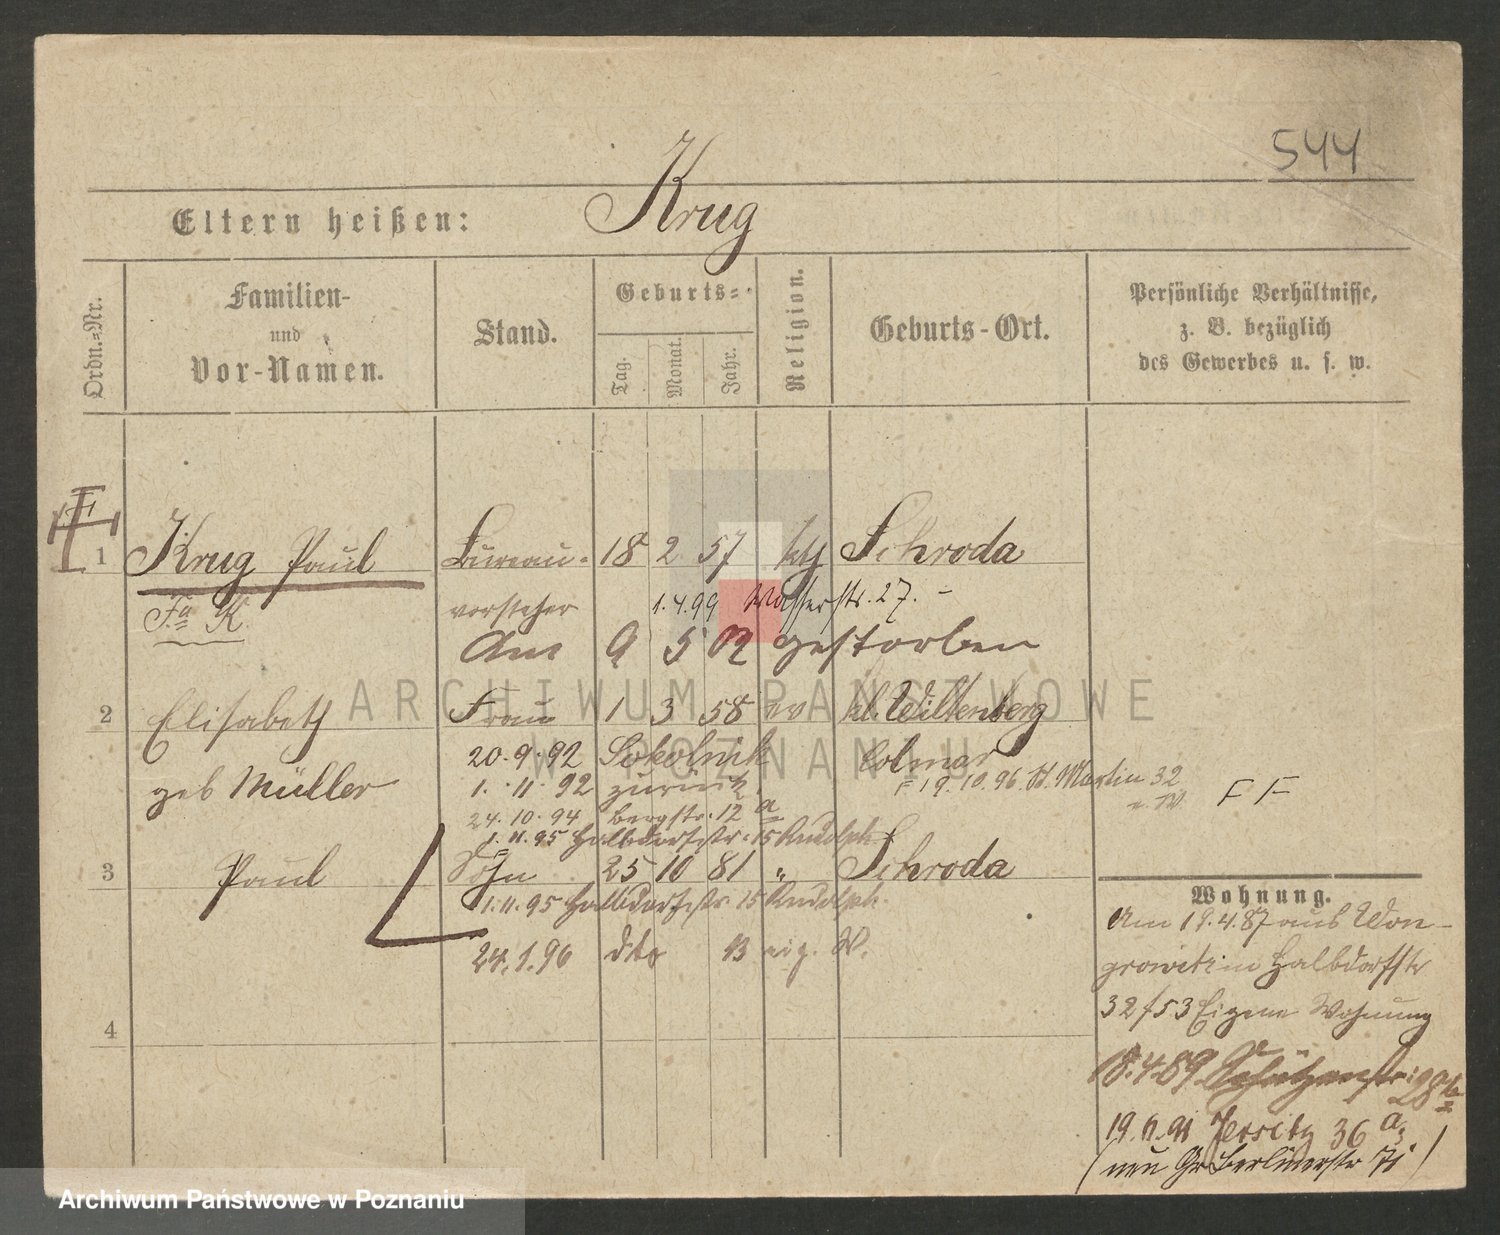 544
Eltern heißen: Krug
Ordn.-Nr.
Familien-
und
Vor-Namen.
Stand.
Geburts-
Tag.
Monat.
Jahr.
Religion.
Geburts-Ort.
Persönliche Verhältnisse,
z. B. bezüglich
des Gewerbes u. s. w.
1 Krug Paul Bureau- 18 2 57 kth Schroda
Fa K. vorsteher 1.4.99 Wasserstr. 27. -
Am 9 5 02 gestorben
2 Elisabeth Frau 1 3 58 ev kl. Wittenberg
20.9.92 Sokolnik Colmar
geb Müller 1.11.92 zurück. 19.10.96 St. Martin 32
F F
24.10.94 Bergstr. 12 a
1.11.95 Halbdorfstr. 15 Rudolph
3 Paul Sohn 25 10 81 " Schroda
1.11.95 Halbdorfstr. 15 Rudolph.
24.1.96 dto 13 eig. W.
4
Wohnung.
Am 19.4.87 aus Won-
growitz in Halbdorfstr
32/53 Eigene Wohnung
8.4.89 Schützenstr. 28
19.11.91 Jersitz 36 a
(neu Gr Berlinerstr 71)
ARCHIWUM PAŃSTWOWE
W POZNANIU
Archiwum Państwowe w Poznaniu